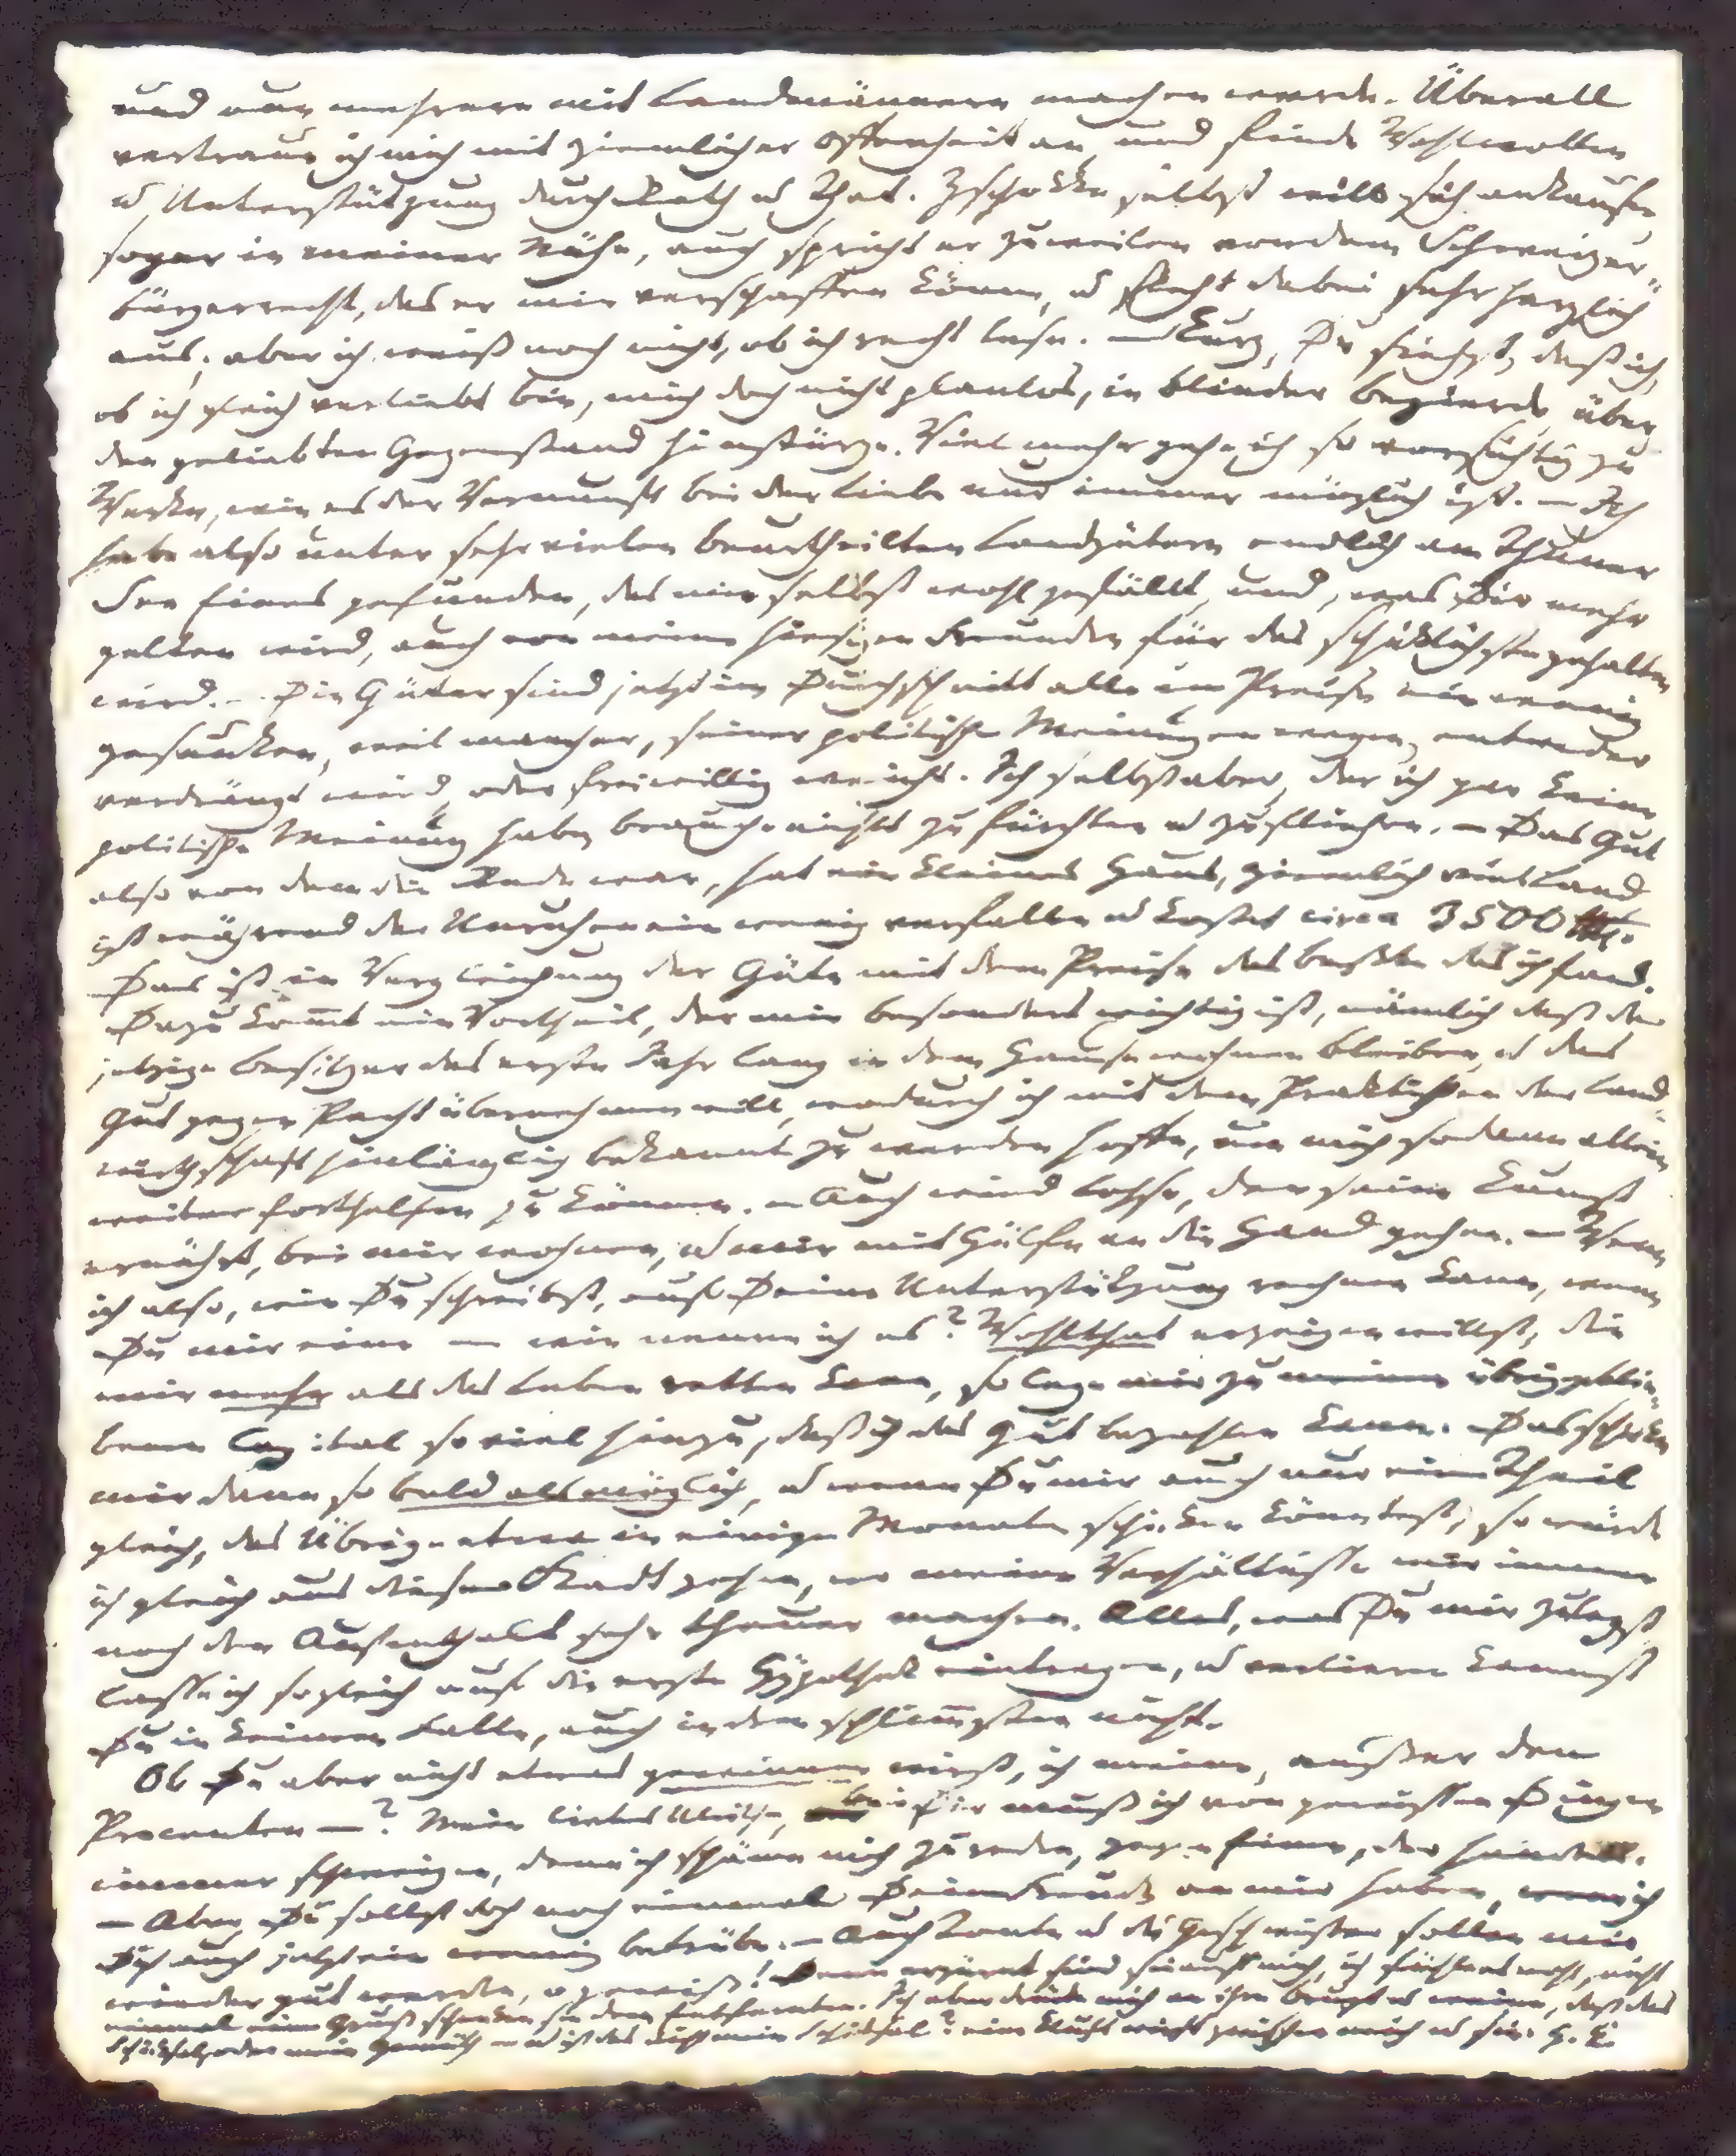 und nun mehrere mit Landmännern machen werde. Überall
vertraue ich mich mit ziemlicher Offenheit an, und finde Wohlwollen
u Unterstützung durch Rath u That. Zschokke selbst will sich ankaufen,
sogar in meiner Nähe, auch spricht er zuweilen von dem Schweizer-
bürgerrecht, das er mir verschaffen könne, u sieht dabei sehr herzlich
aus; aber ich weiß noch nicht, ob ich recht lese. – Kurz, Du siehst, daß ich,
ob ich gleich verliebt bin, mich doch nicht planlos, in blinder Begierde, über
den geliebten Gegenstand hinstürze. Vielmehr gehe ich so vorsichtig zu
Werke, wie es der Vernunft bei der Liebe nur immer möglich ist. – Ich
habe also unter sehr vielen beurtheilten Landgütern endlich am Thuner
See Eines gefunden, das mir selbst wohl gefällt, und, was Dir mehr
gelten wird, auch von meinen hiesigen Freunden für das schicklichste gehalten
wird. – Die Güter sind jetzt im Durchschnitt alle im Preise ein wenig
gesunken, weil mancher, seiner politischen Meinungen wegen, entweder
verdrängt wird, oder freiwillig weicht. Ich selbst aber, der ich gar keine
politische Meinung habe, brauche nichts zu fürchten u zu fliehen. – Das Gut
also von dem die Rede war, hat ein kleines Haus, ziemlich viel Land,
ist während der Unruhen ein wenig verfallen u kostet circa 3500
Das ist in Vergleichung der Güte mit dem Preise das beßte das ich fand.
Dazu kommt ein Vortheil, der mir besonders wichtig ist, nämlich daß der
jetzige Besitzer das erste Jahr lang in dem Hause wohnen bleiben, u das
Gut gegen Pacht übernehmen will, wodurch ich mit dem Praktischen der Land-
wirthschaft hinlänglich bekannt zu werden hoffe, um mich sodann allein
weiter forthelfen zu können. – Auch wird Lohse, den seine Kunst
ernährt, bei mir wohnen, u mir mit Hülfe an die Hand gehen. – Wenn
ich also, wie Du schreibst, auf Deine Unterstützung rechnen kann, wenn
Du mir eine – wie nenne ich es? Wohlthat erzeigen willst, die
mir mehr als das Leben retten kann, so lege mir zu meinem übriggeblie-
benen Capital so viel hinzu, daß ich das Gut bezahlen kann. Das schicke
mir dann so bald als möglich, u wenn Du mir auch nur einen Theil
gleich, das Übrige etwa in einigen Monaten schicken könntest, so würde
ich gleich aus dieser Stadt gehen, wo meine Verhältnisse mir immer
noch den Aufenthalt sehr theuer machen. Alles, was Du mir zulegst
lasse ich sogleich auf die erste Hÿpothek eintragen, u verlieren kannst
Du in keinem Falle, auch in dem schlimmsten nicht.
Ob Du aber nicht etwas gewinnen wirst, ich meine, außer den
Procenten –? Mein liebes Ulrikchen, bei Dir muß ich von gewissen Dingen
immer schweigen, denn ich schäme mich zu reden, gegen Einen, der handelt.
– Aber Du sollst doch noch einmal Deine Freude an mir haben, wenn ich
Dich auch jetzt ein wenig betrübe. – Auch Tante u die Geschwister sollen mir
wieder gut werden, o gewiß! Denn erzürnt sind sie auf mich, ich fühle es wohl, nicht
einmal einen Gruß schenken sie dem Entfernten. Ich aber drücke mich an ihre Brust u weine, daß das
Schicksal, oder mein Gemüth – u ist das nicht mein Schicksal? eine Kluft wirft zwischen mich u sie. H. K.